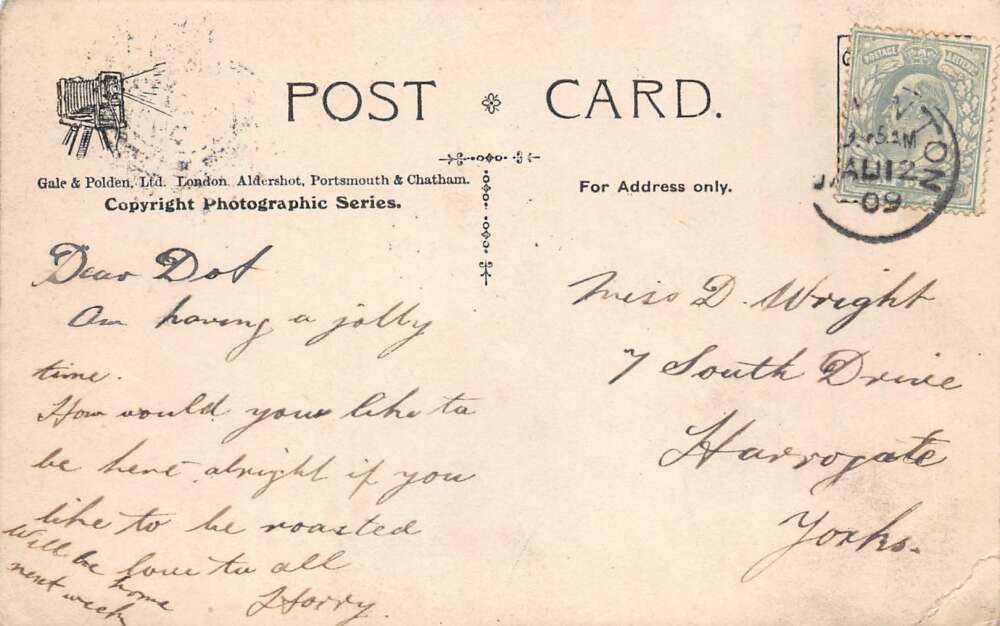 POST CARD.
Gale & Polden, Ltd. London, Aldershot, Portsmouth & Chatham.
Copyright Photographic Series.
For Address only.
POSTAGE
AU 12
09
Dear Dot
Am having a jolly
time.
How would you like to
be here alright if you
like to be roasted
love to all
Harry.
Will be home
next week
Miss D. Wright
7 South Drive
Harrogate
Yorks.